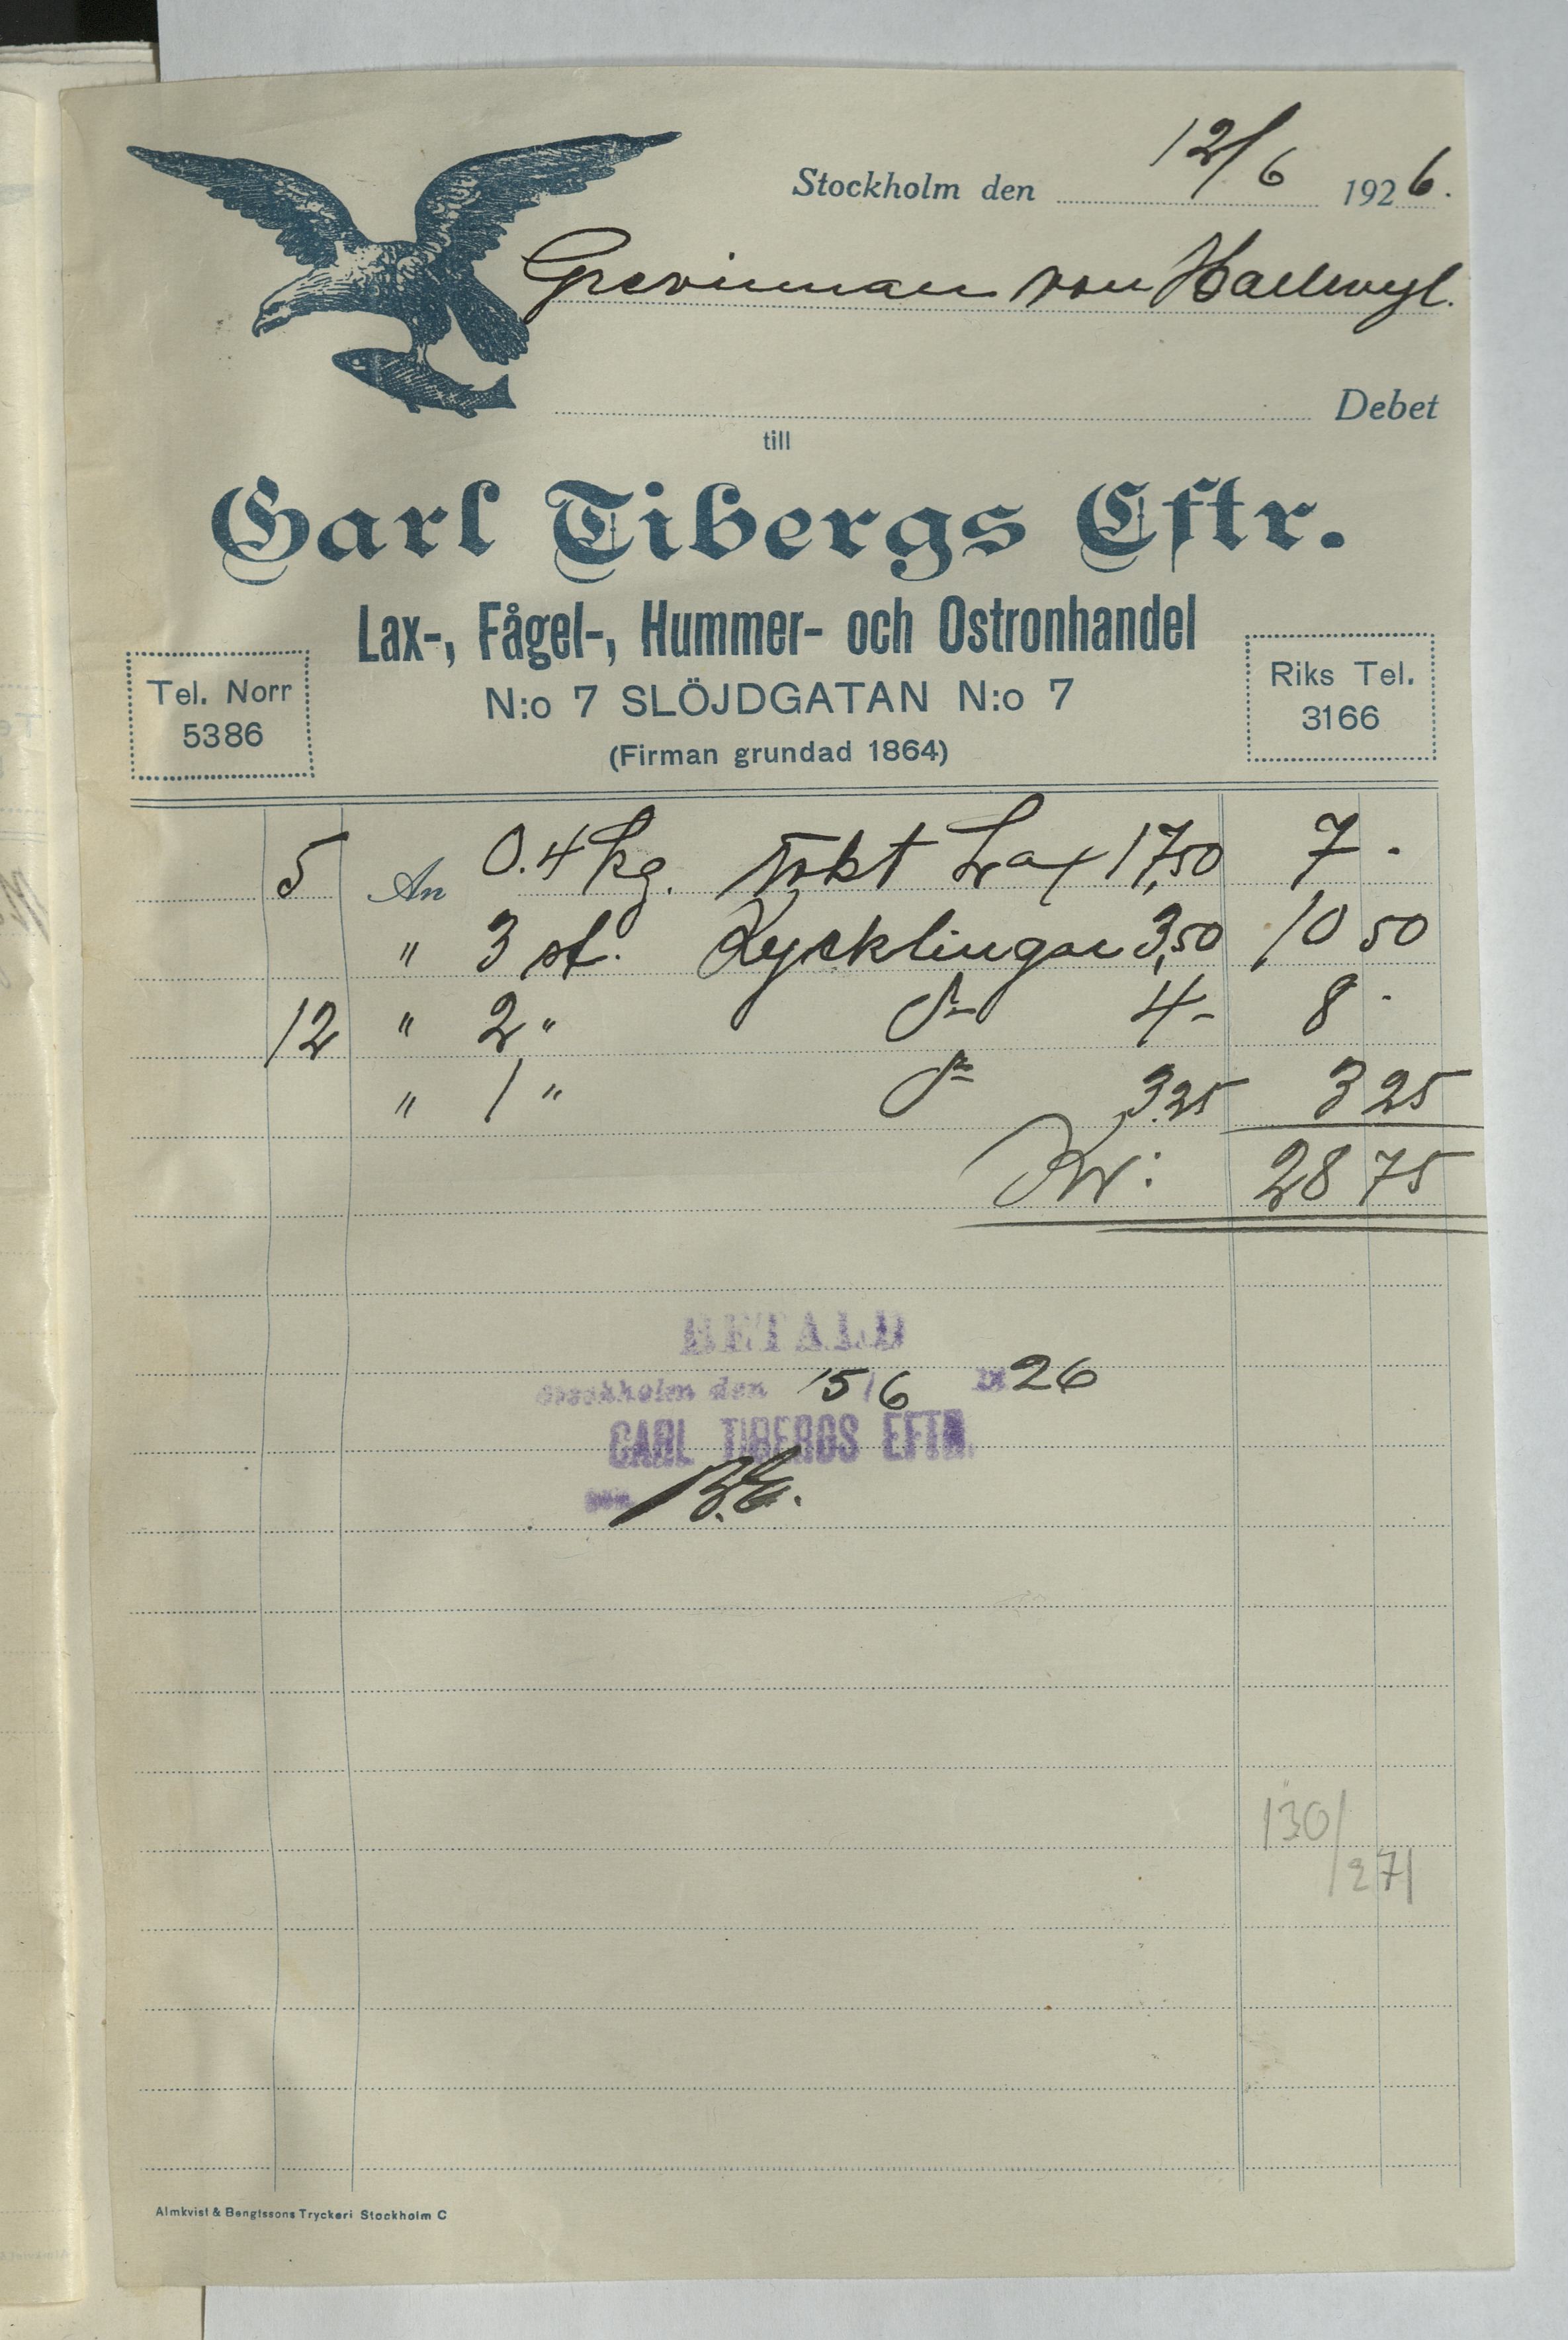 Stockholm den 12/6 1926.
Grevinnan von Hallwyl.
Debet
till
Carl Tibergs Eftr.
Lax-, Fågel-, Hummer- och Ostronhandel
Tel. Norr
5386
N:o 7 SLÖJDGATAN N:o 7
(Firman grundad 1864)
Riks Tel.
3166
5 An 0.4 kg. rökt Lax 17,50 7 -
" 3 st. Kycklingar 3,50 10 50
12 " 2 " do 4- 8 -
" 1 " do 3.25 3 25
Kr: 28 75
BETALD
Stockholm den 15/6 1926
CARL TIBERGS EFTR.
B.E.
130/
/271
Almkvist & Bengtssons Tryckeri Stockholm C